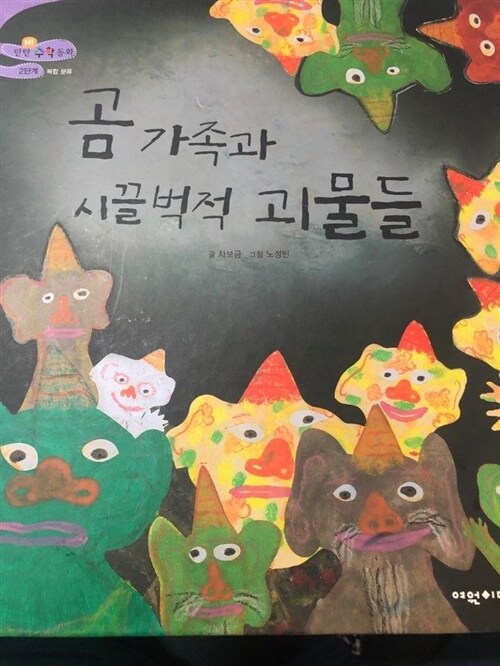 탄탄 수학동화
2단계 복합 분류
곰 가족과
시끌벅적 괴물들
글 차보금 그림 노성빈